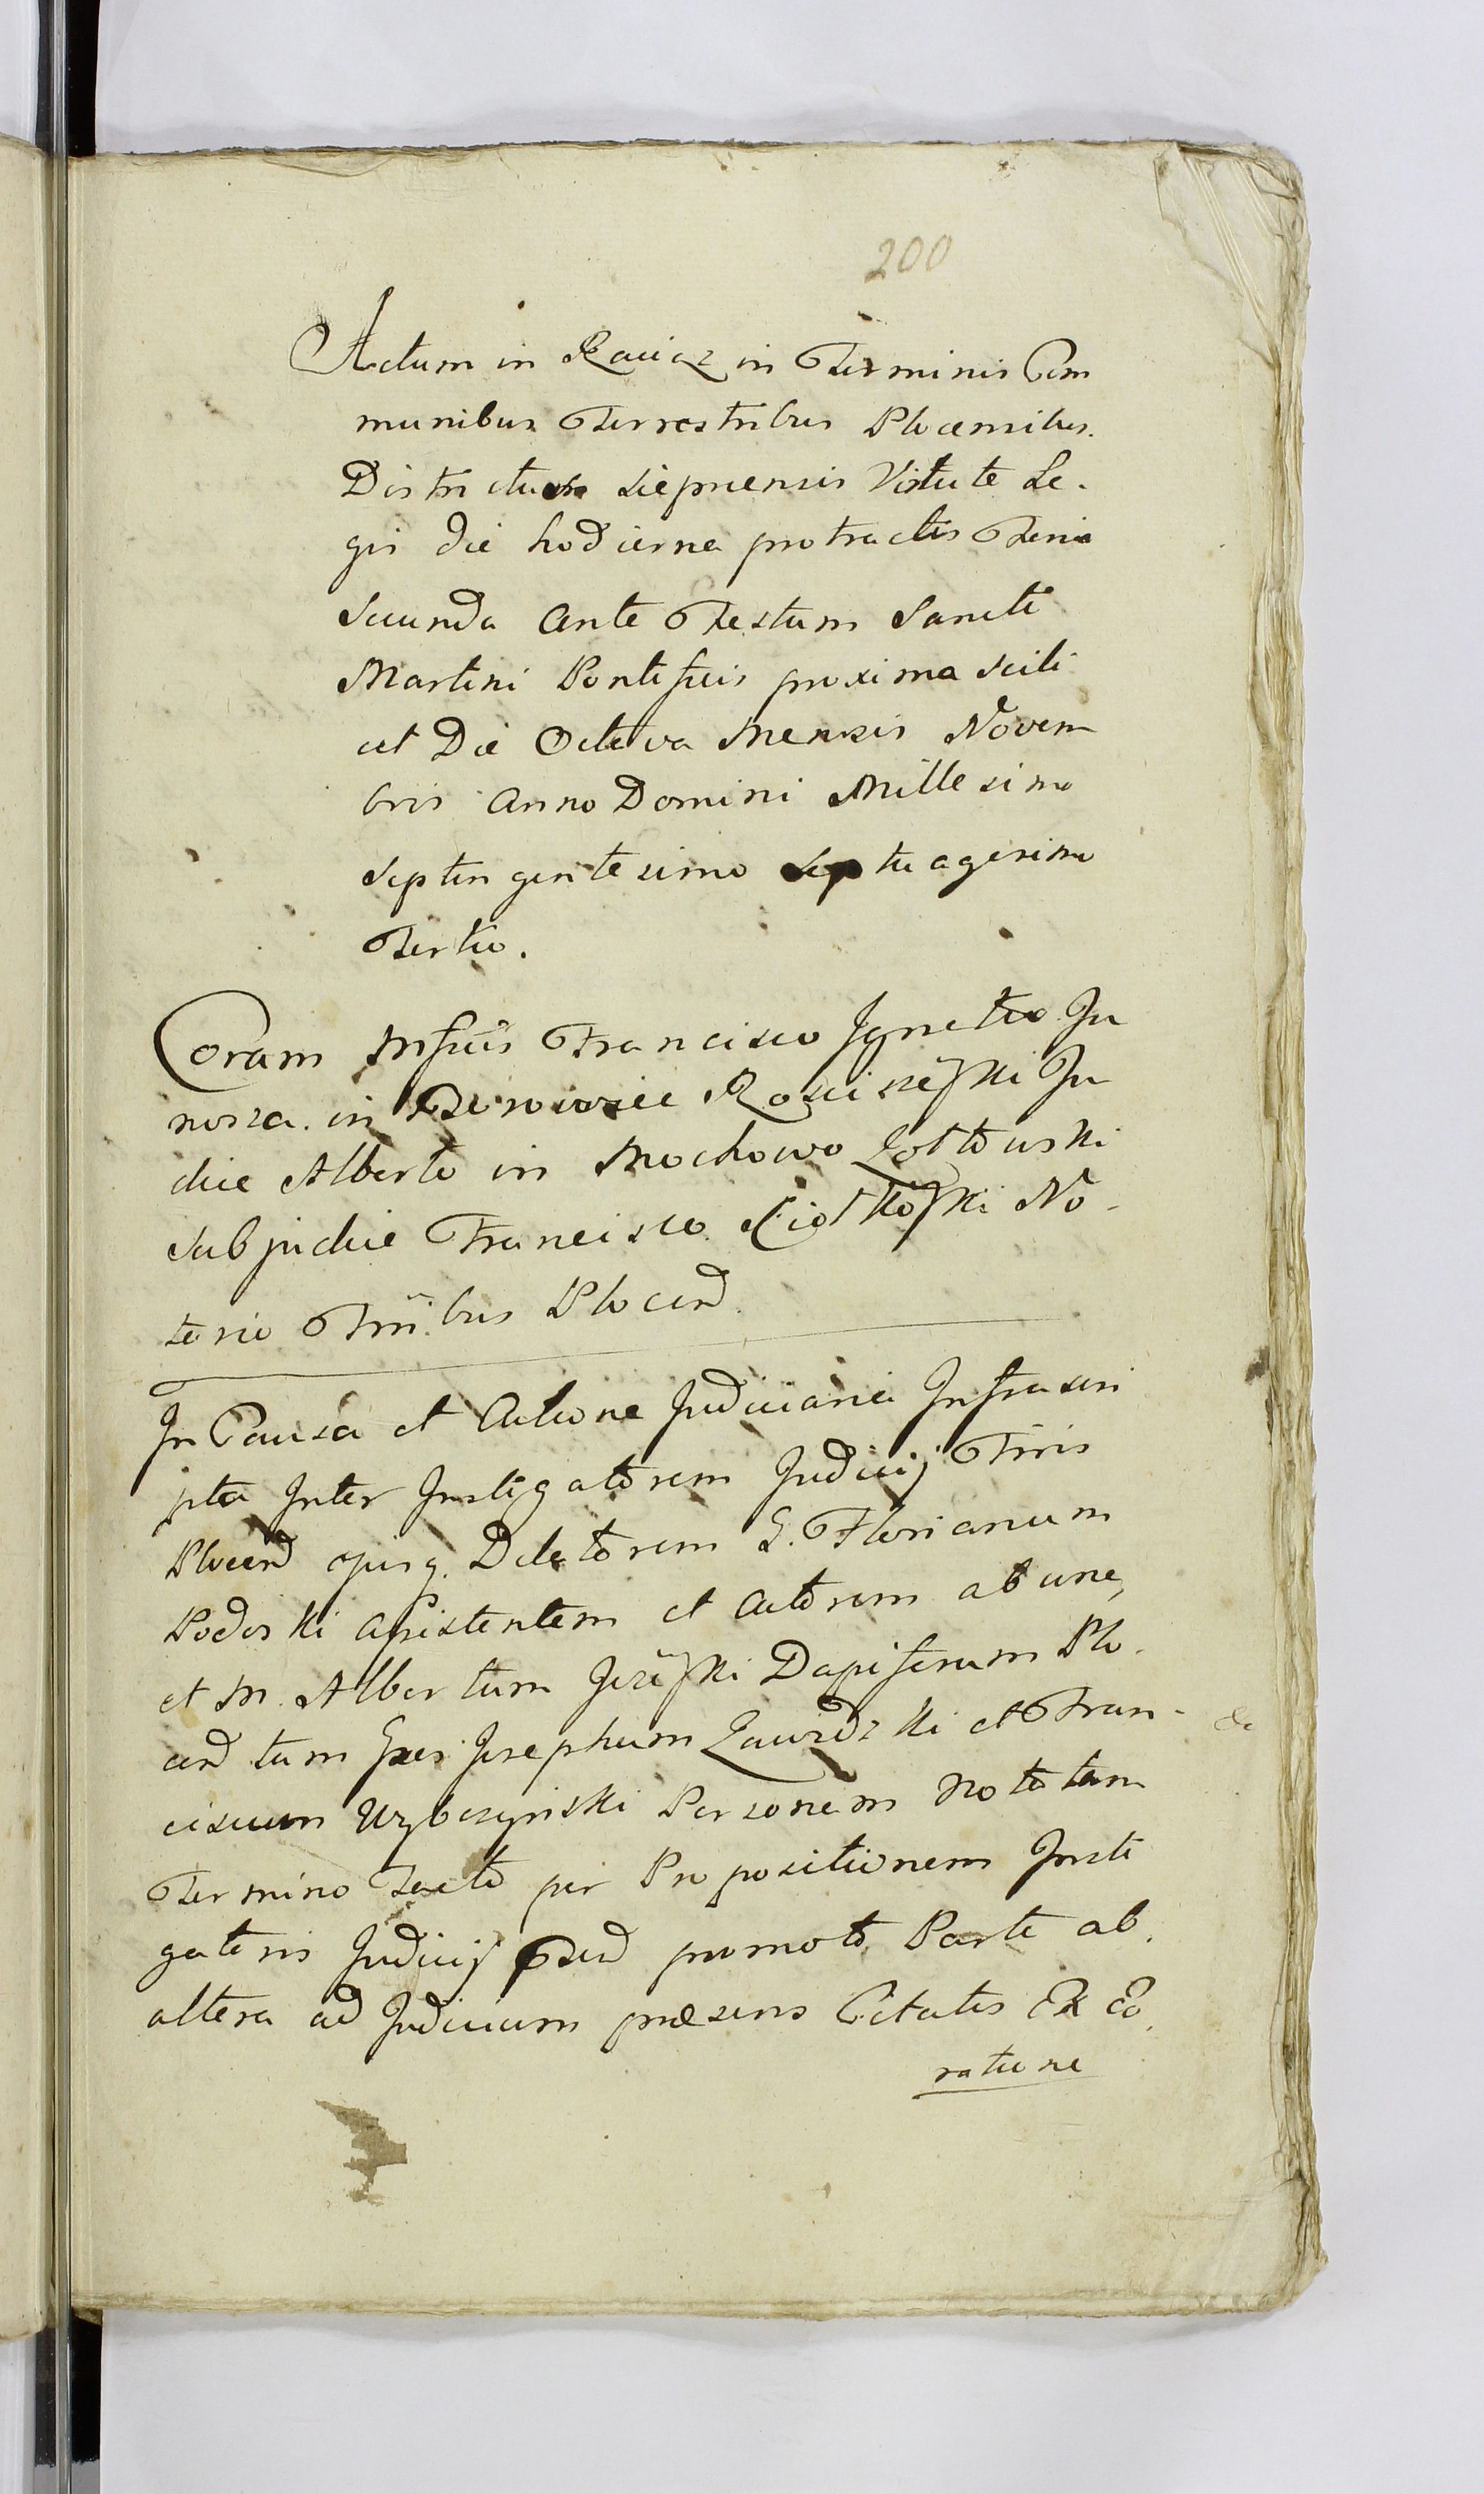 200
Actum in Raciąz in Terminis Com
munibus Terrestribus Plocensibus.
Districtus Siepnensis Virtute Le.
gis die hodierna protractis Feria
Secunda Ante Festum Sancti
Martini Pontificis proxima Scili
cet Die Octava Mensis Novem
bris Anno Domini Millesimo
Septingentesimo Septuagesimo
Tertio.
Coram Mfficis Francisco Ignatio Ju
nosza in Rościszeski Ju
dice Alberto in Mochowo
Subjudice Francisco No
tario Trribus Plocen
In Causa et Actione Judiciaria Infrascri
pta Inter Instigatorem Judicij Trris
Plocen ejusq. Delatorem G. Florianum
Podoski Assistentem et Actorem ab una,
et M. Albertum Dapiferum Plo.
cen tum Josephum et Fran-
ciscum Personam Notatam
Termino Tacto per Propositionem Insti
gatoris Judicij promoto Parte ab.
altera ad Judicium præsens Citatis Ex Eo.
ratione